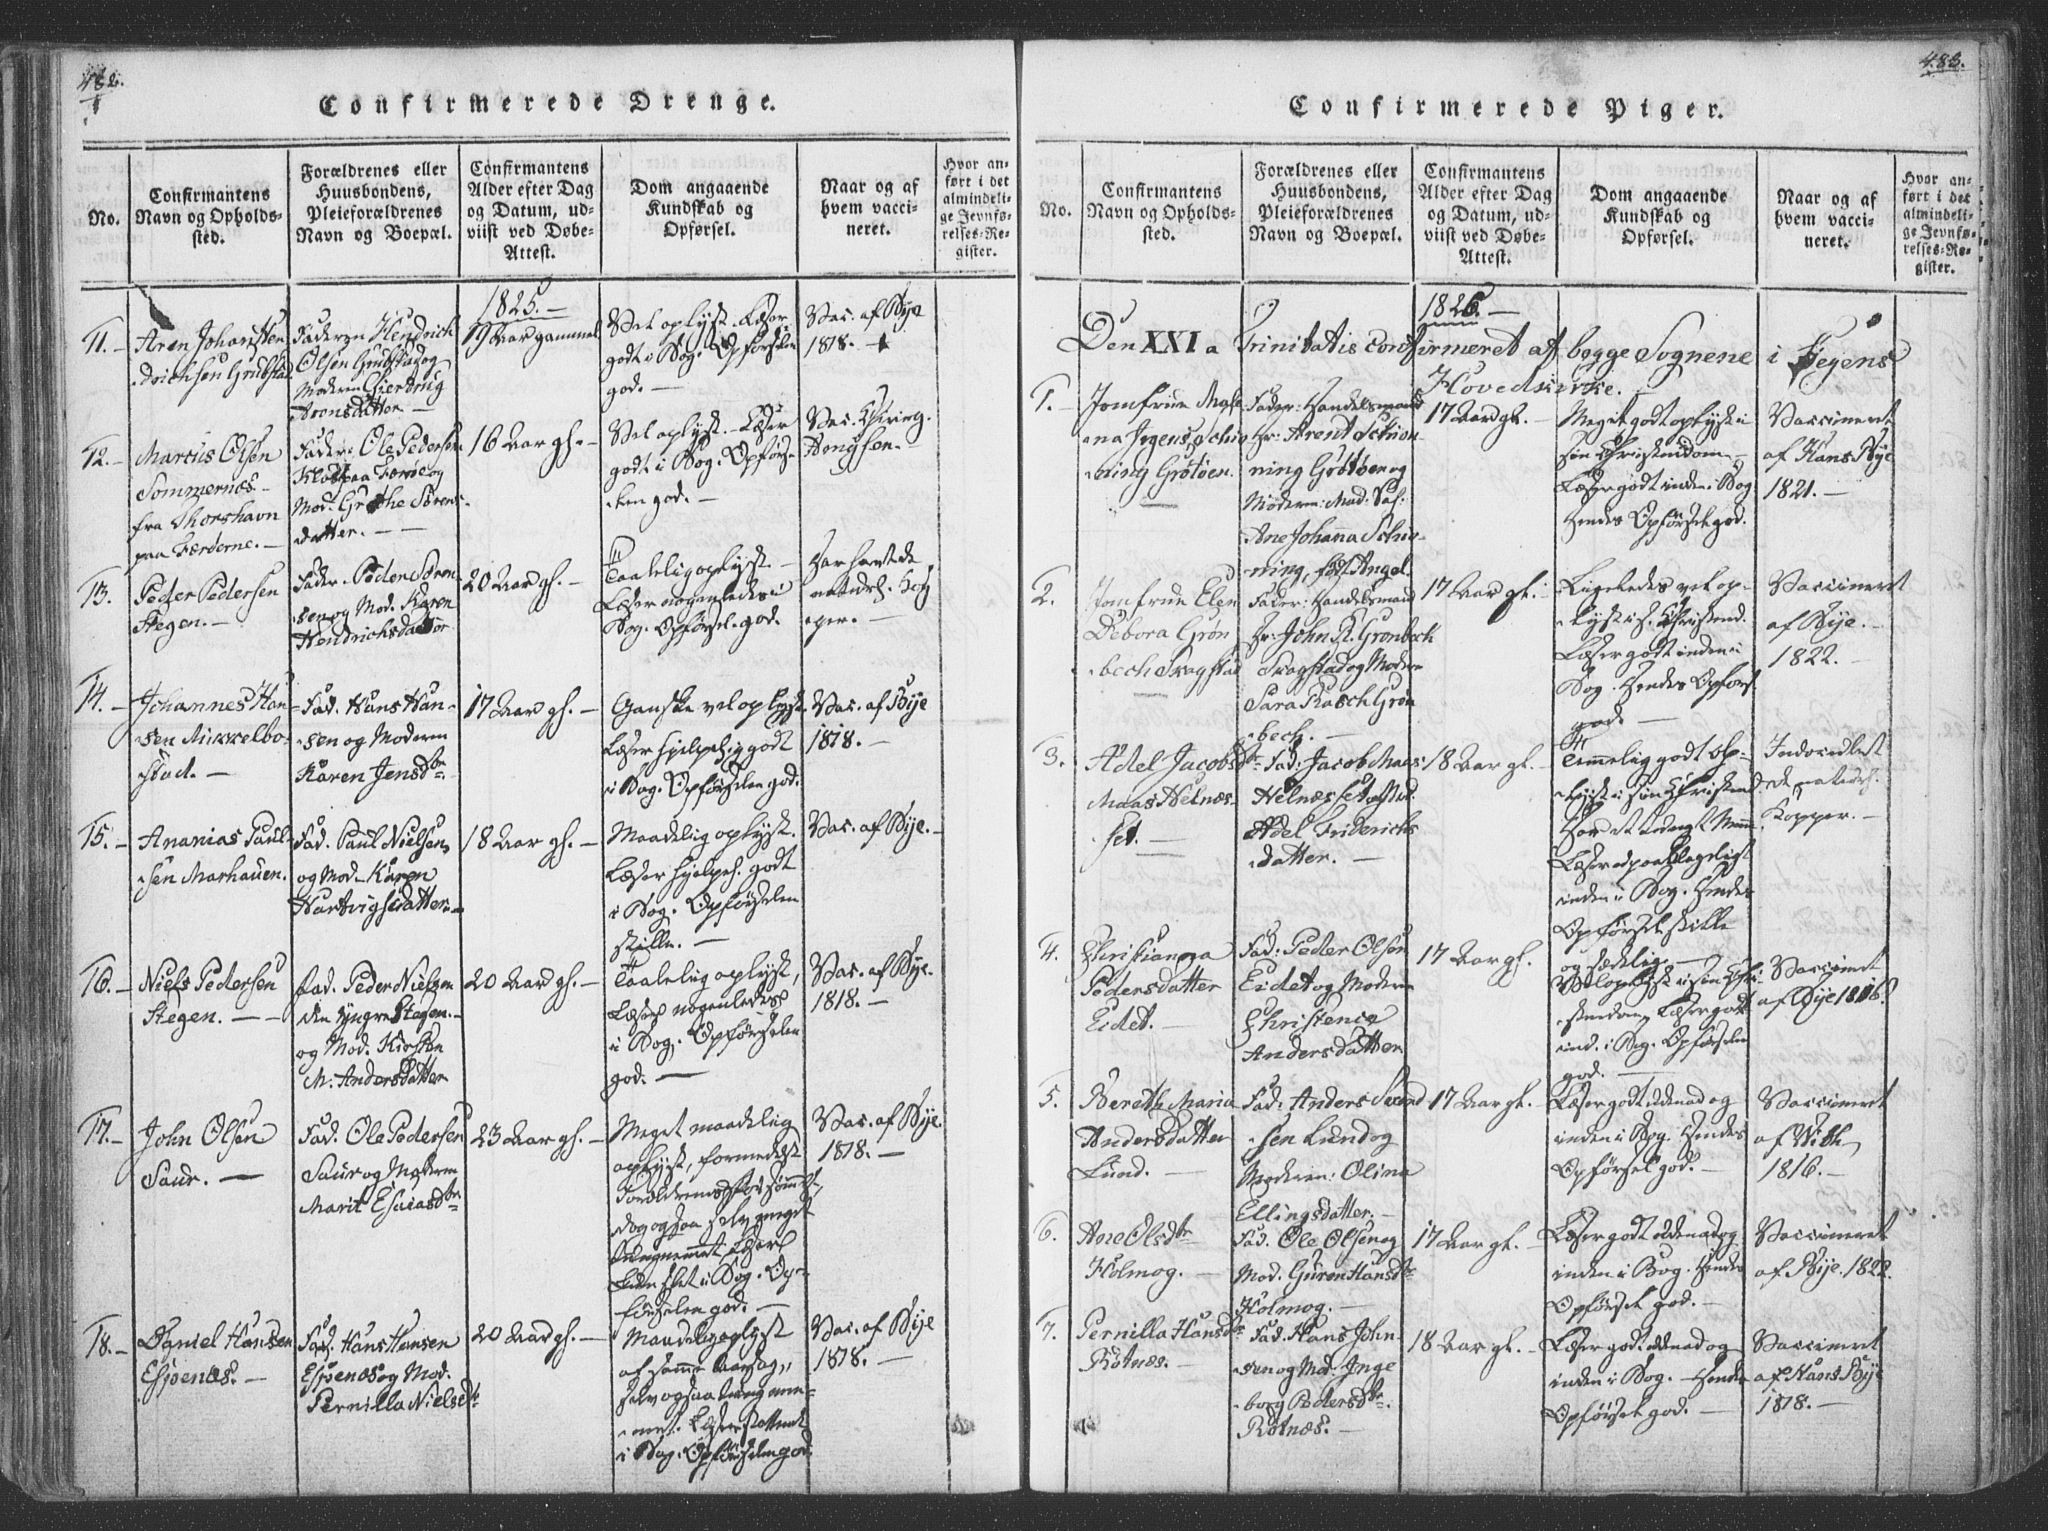 482.
Confirmerede Drenge.
No.
Confirmantens
Navn og Opholds-
sted.
Forældrenes eller
Huusbondens,
Pleieforældrenes
Navn og Boepæl.
Confirmantens
Alder efter Dag
og Datum, ud-
viist ved Døbe-
Attest.
Dom angaaende
Kundskab og
Opførsel.
Naar og af
hvem vacci-
neret.
Hvor an-
ført i det
almindeli-
ge Jevnfø-
relses-Re-
gister.
1825.
11.
Aron Johan Hen-
drichsen Grubstad
Faderen Hendrich
Olsen Grubstad og
Moderen Giertrug
Aronsdatter
19 Aar gammel
Vel oplyst. Læser
godt i Bog. Opførselen
god.
Vac. af Bye
1818.
12.
Marcus Olsen
Sommernæs
fra Thorshavn
paa Færøerne.
Fader: Ole Pedersen
paa Færøe og
Mod. Grethe Sørens-
datter.
16 Aar gl.
Vel oplyst. Læser
godt i Bog. Opførse-
len god.
Vac. Chirurg.
13.
Peder Pedersen
Stegen.
Fader: Peder Søren-
sen og Mod. Karen
Hendrichsdatter
20 Aar gl.
Taalelig oplyst
Læser nogenledes i
Bog. Opførsel god.
Har havt de
naturl. Kop-
per.
14.
Johannes Han-
sen Mikkelbo-
stad.
Fad. Hans Han-
sen og Moderen
Karen Jensdtr
17 Aar gl.
Ganske vel oplyst
Læser hjelpel. godt
i Bog. Opførselen god.
Vac. af Bye
1818.
15.
Ananias Paul-
sen Marhauen.
Fad. Paul Nielsen
og Mod. Karen
Hartvigsdatter.
18 Aar gl.
Maadelig oplyst.
Læser hjelpel. godt
i Bog. Opførselen
stille.
Vac. af Bye.
16.
Niels Pedersen
Stegen.
Fad. Peder Nielsen
den yngre Stegen.
og Mod. Kirsten
M. Andersdatter
20 Aar gl.
Taalelig oplyst,
Læser nogenledes
i Bog. Opførselen
god.
Vac. af Bye.
1818.
17.
John Olsen
Saur.
Fad. Ole Pedersen
Saur og Moderen
Marit Esaiasdtr
23 Aar gl.
Meget maadelig
oplyst, formedelst
Forældrenes Forsømmel.,
dog ogsaa selv meget
tungnemmet. Læser
slet i Bog. Op-
førselen god.
Vac. af Bye.
1818.
18.
Daniel Hansen
Espenæs.
Fad. Hans Hansen
Espenæs og Mod.
Pernilla Nielsdtr
20 Aar gl.
Maadelig oplyst
af samme Aarsag,
selv ogsaa tungnem-
met. Læser
i Bog. Opførselen god
Vac. af Bye
1818.
483.
Confirmerede Piger.
No.
Confirmantens
Navn og Opholds-
sted.
Forældrenes eller
Huusbondens,
Pleieforældrenes
Navn og Boepæl.
Confirmantens
Alder efter Dag
og Datum, ud-
viist ved Døbe-
Attest.
Dom angaaende
Kundskab og
Opførsel.
Naar og af
hvem vacci-
neret.
Hvor an-
ført i det
almindeli-
ge Jevnfø-
relses-Re-
gister.
1826.
Den XXI a Trinitatis confirmeret af begge Sognene i Stegens
Hovedkirke.
1.
Jomfrue
Schiø-
ning Grøtøen.
Fader: Handelsmand
Hr: Arent Schiøn-
ning Grøtøen og
Moderen: Mad: Sal:
Ane Johanna Schiø-
ning, født Angel.
17 Aar gl.
Meget godt oplyst i
sin Christendom
Læser godt inden i Bog
Hendes Opførsel god.
Vaccineret
af Hans Bye
1821.
2.
Jomfrue Elen
Debora Grøn-
bech Tragstad
Fader: Handelsmand
Hr: John R. Grønbech
Tragstad og Moderen
Sara Rasch Grøn-
bech.
17 Aar gl.
Ligeledes vel op-
lyst i s. Christend.
Læser godt inden i
Bog. Hendes Opførs.
god.
Vaccineret
af Bye.
1822.
3.
Adel Jacobsdtr
Maas Helnæs-
set.
Fad: Jacob Maas
Helnæsset og Mod.
Adel Friderichs-
datter.
18 Aar gl.
Temmelig godt op-
lyst i sin Christend.
Har et Nemme
Læser upaaklageligt
inden i Bog. Hendes
Opførsel stille
og sædelig.
de naturl.
Kopper.
4.
Christianna
Pedersdatter
Eidet.
Fad: Peder Olsen
Eidet og Moderen
Christence
Andersdatter
17 Aar gl.
Vel oplyst i sin Chri-
stendom, Læser godt
ind. i Bog. Opførselen
god.
Vaccineret
af Bye 1816.
5.
Bereth Maria
Andersdatter
Lund.
Fad: Anders Svend-
sen Lund og
Moderen: Olina
Ellingsdatter.
17 Aar gl.
Læser godt udenad og
inden i Bog. Hendes
Opførsel god.
Vaccineret
af With
1816.
6.
Ane Olsdtr
Holmog.
Fad. Ole Olsen og
Mod. Guren Hansdtr
Holmog.
17 Aar gl.
Læser godt udenad og
inden i Bog. Hendes
Opførsel god.
Vaccineret
af Bye. 1822.
7.
Pernilla Hansdtr
Rotnæs.
Fad. Hans John-
sen og Mod. Inge-
borg Pedersdtr.
Rotnæs.
18 Aar gl.
Læser godt udenad og
inden i Bog. Hendes
Opførsel god.
Vaccineret
af Hans Bye
1818.